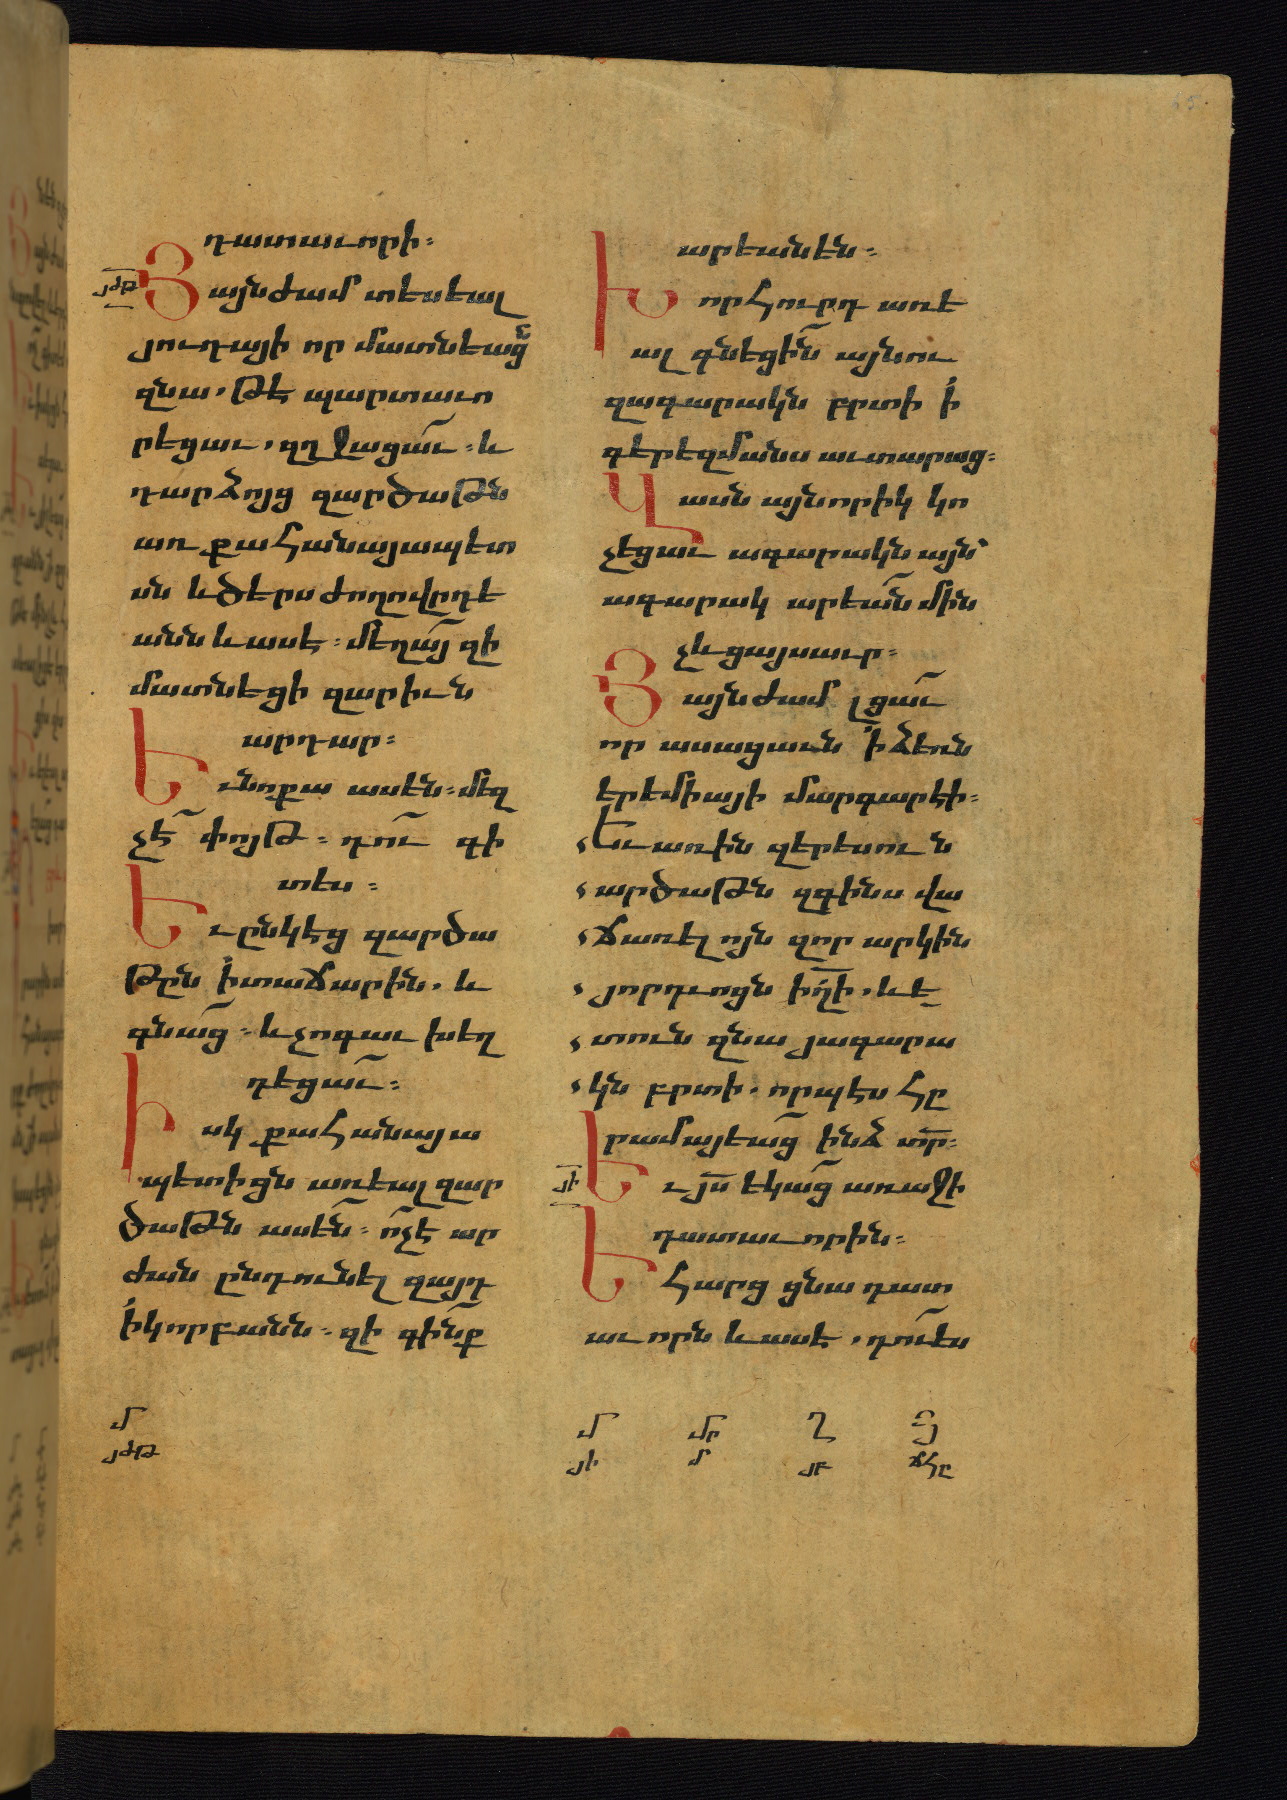 դատաւորի։
յժթ
Յայնժամ տեսեալ
յուդայի որ մատնեացն
զնա, թէ պարտաւո
րեցաւ, զղջացաւ։ և
դարձոյց զարծաթն
առ քահանայապետ
սն և ծերս ժողովրդե
անն և ասէ։ մեղայ զի
մատնեցի զարիւն
արդար։
Եւ նոքա ասեն։ մեզ
չէ փոյթ։ դու գի
տես։
Եւ ընկէց զարծա
թըն ի տաճարին, և
գնաց։ և չոգաւ խեղ
դեցաւ։
Իսկ քահանայա
պետիցն առեալ զար
ծաթն ասեն։ ոչ է ար
ժան ընդունել զայդ
ի կորբանն։ զի գինք
արեանեն։
Խորհուրդ առե
ալ գնեցին այնու
զագարակն բրտի ի
գերեզմանս աւտարաց։
Վասն այնորիկ կո
չեցաւ ագարակն այն
ագարակ արեան մին
չև ցայսաւր։
Յայնժամ լցաւ
որ ասացաւն ի ձեռն
երեմիայի մարգարէի։
Եւ առին զերեսուն
արծաթն զգինս վա
ճառելոյն զոր արկին
յորդւոցն իղի, և ե
տուն զնա յագարա
կն բրտի, որպէս հը
րամայեաց ինձ տր։
յի
Եւ յս եկաց առաջի
դատաւորին։
Եհարց ցնա դատ
աւորն և ասէ, դու ես
մ
յժթ
մ
յի